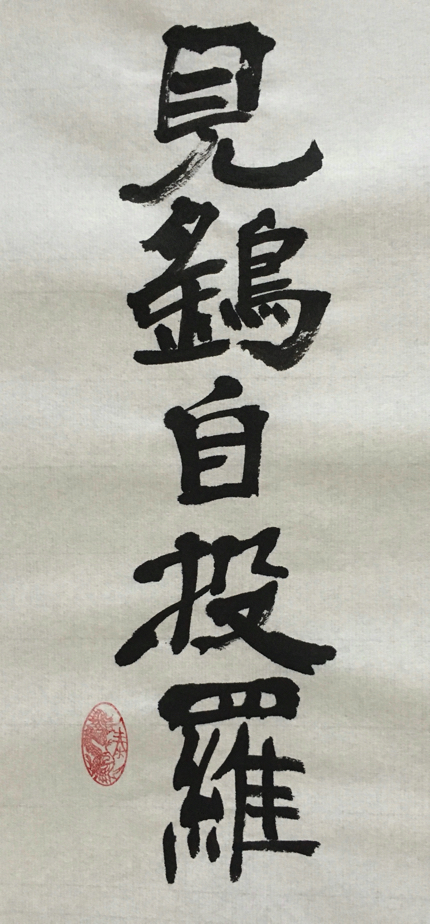 見鷂自投羅